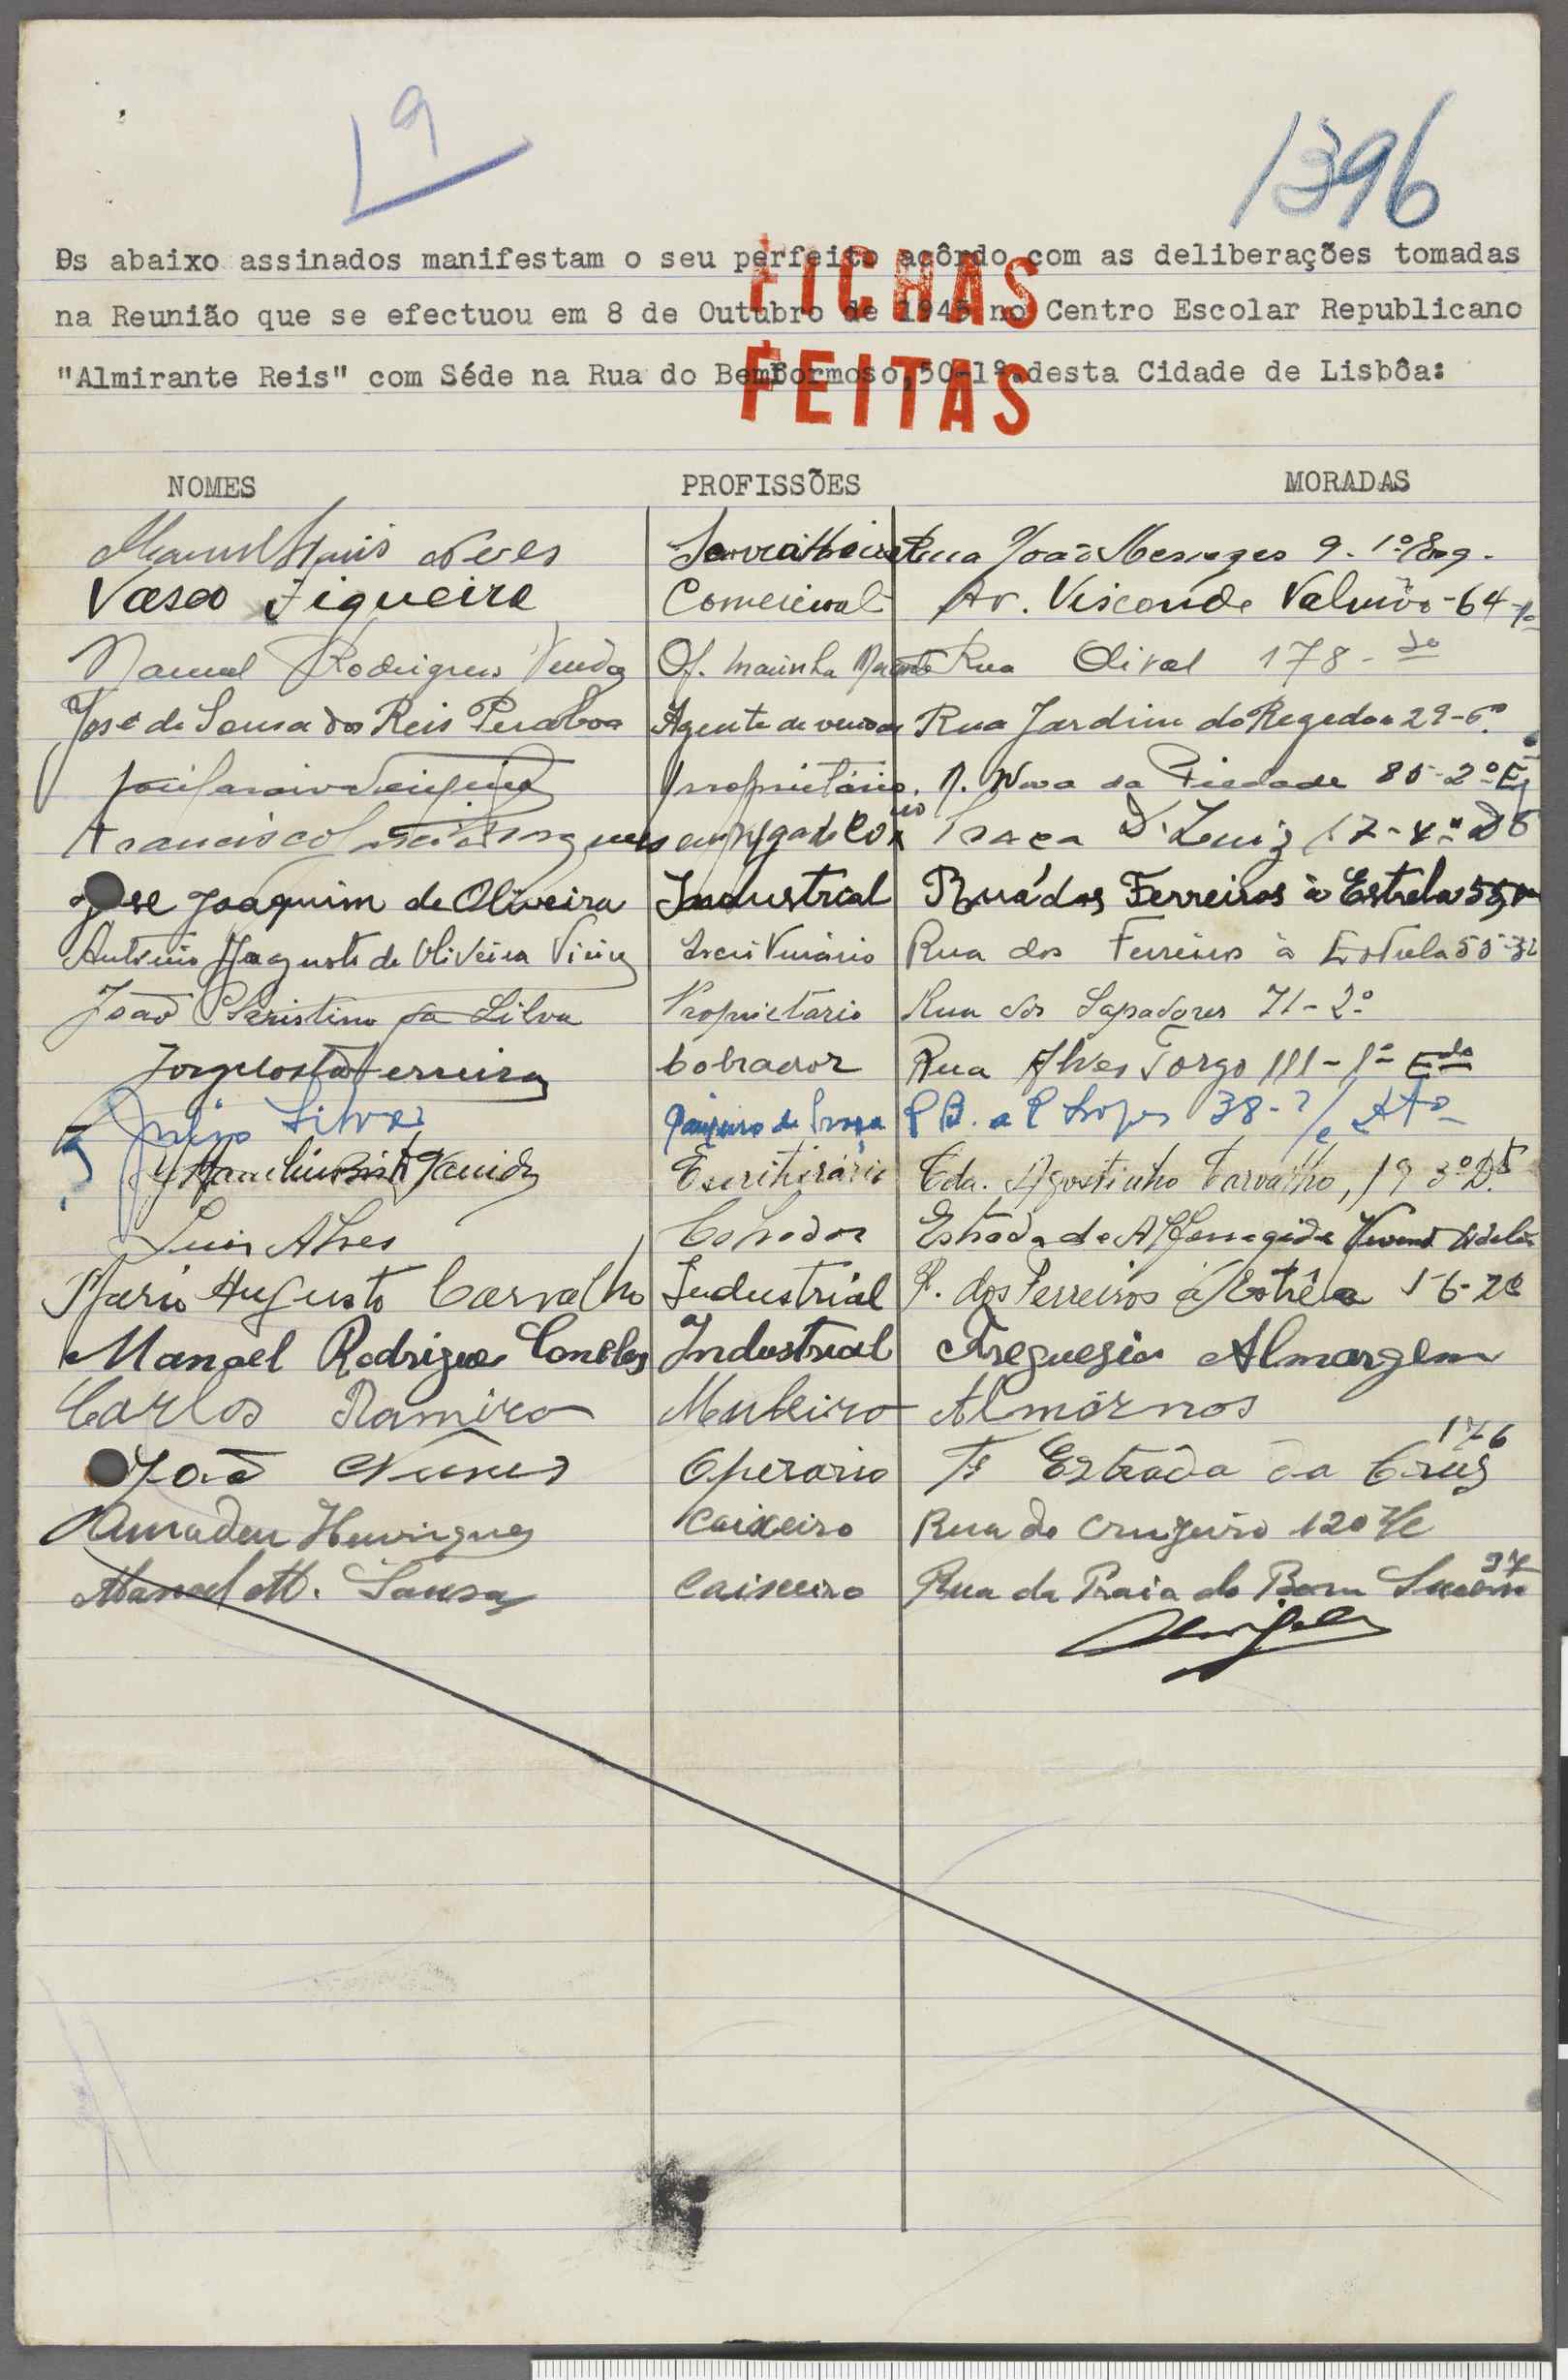 9
1396
Os abaixo assinados manifestam o seu perfeito acôrdo com as deliberações tomadas
na Reunião que se efectuou em 8 de Outubro de 1945 no Centro Escolar Republicano
"Almirante Reis" com Séde na Rua do Bemformoso,50-1º.desta Cidade de Lisbôa:
FICHAS
FEITAS
NOMES PROFISSÕES MORADAS
Manuel Neves Serralheiro Rua João Menezes 9-1º
Vasco Figueira Comercial Av. Visconde Valmôr-64-1º
Manuel Rodrigues Of. Marinha Rua Olival 178-3º
José de Sousa dos Reis Peraboa Agente de vendas Rua Jardim do Regedor 29-6º
proprietário. R. Nova da Piedade 85-2º E
Francisco empregado Praça D. Luiz 17-4º D
José Joaquim de Oliveira Industrial Rua dos Ferreiros à Estrela 55
António Augusto de Oliveira Escriturário Rua dos Ferreiros à Estrela 55-3º
João da Silva Proprietário Rua dos Sapadores 71-2º
Jorge Costa Ferreira Cobrador Rua Alves Torgo 111-1º Edo
Silva 38
Escriturário Cda. Agostinho Carvalho, 19 3º D.
Luis Alves Cobrador Estrada de
Mário Augusto Carvalho Industrial R. dos Ferreiros á Estrêla
Manoel Rodrigues Industrial Freguesia Almargem
Carlos Ramiro Almórnos
176
João Nunes Operario Estrada da Cruz
Amadeu Henriques Caixeiro Rua do Cruzeiro 120 r/c
37
Manuel M. Sousa Caixeiro Rua da Praia do Bom Sucesso